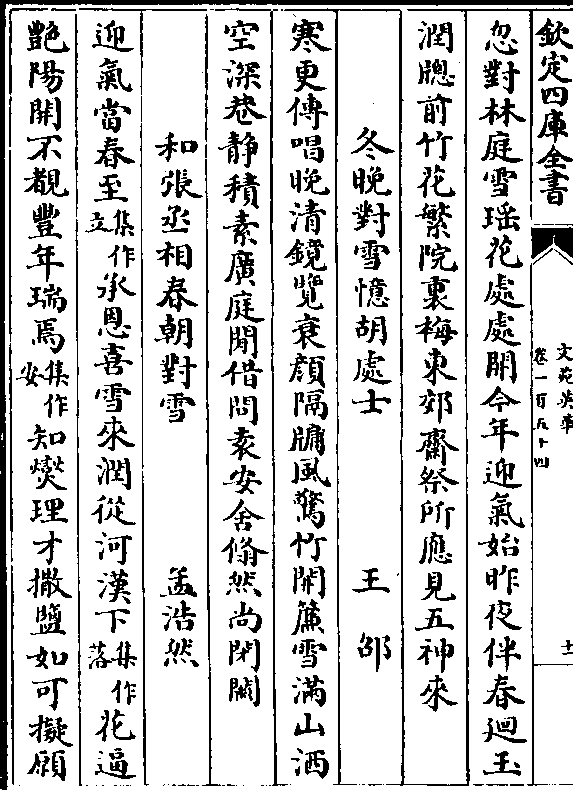 欽定四庫全書
文苑英華
卷一百五十四
十
忽對林庭雪瑶花處處開今年迎氣始昨夜伴春廻玉
潤牕前竹花繁院裏梅東郊齋祭所應見五神來
冬晚對雪憶胡處士 王邵
寒更傳唱晚清鏡覽衰顔隔牗風驚竹開簾雪滿山洒
空深巷静積素廣庭閒借問袁安舍翛然尚閉關
和張丞相春朝對雪 孟浩然
迎氣當春至集作立承恩喜雪來潤從河漢下集作落花逼
艶陽開不覩豐年瑞焉集作安知爕理才撒鹽如可擬願